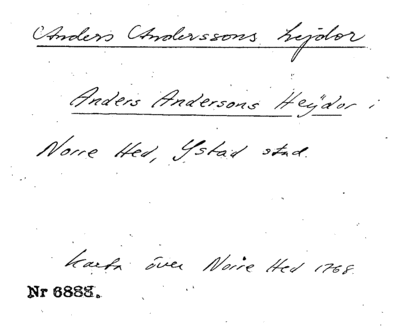 Anders Anderssons hejdor
Anders Andersons Heÿdor i
Norre Hed, Ystad stad.
Karta över Norre Hed 1768.
Nr 6888.